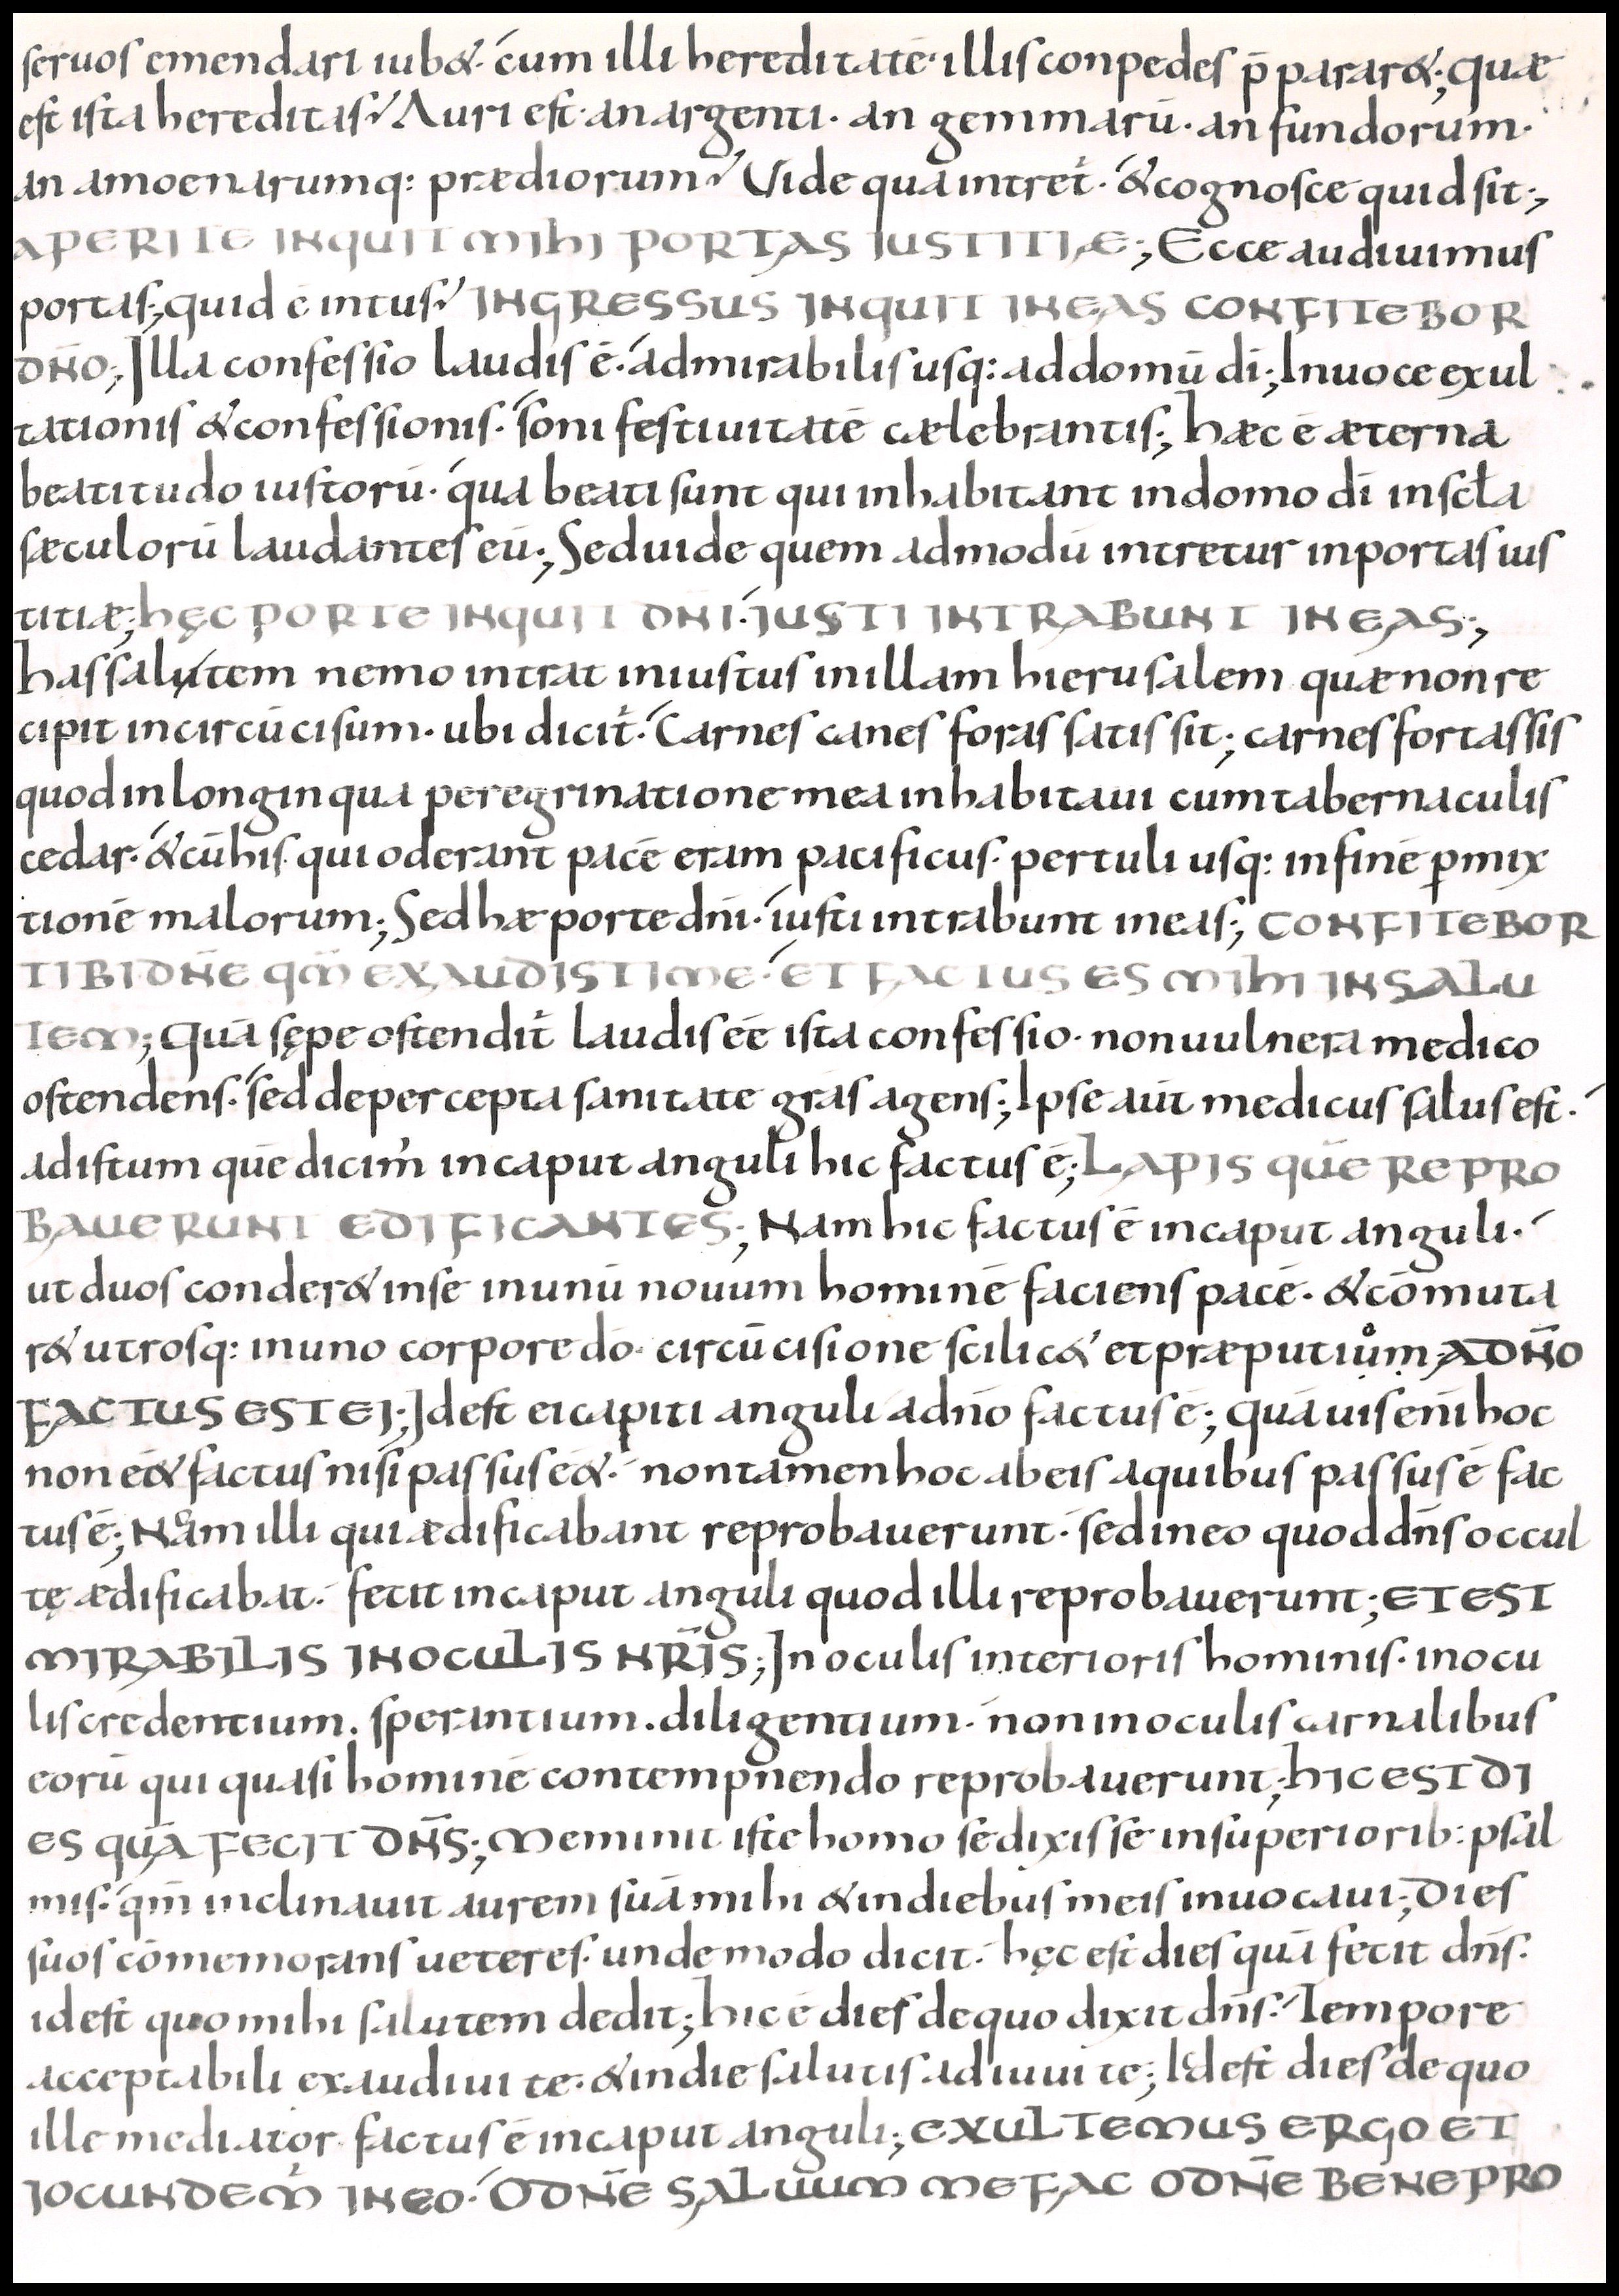 seruos emendari iub&· cum illi hereditatē· illis conpedes p̄parar&; quæ
est ista hereditas? Auri est· an argenti· an gemmarū· an fundorum·
an amoenarumq: prædiorum? Vide qua intret̄· & cognosce quid sit;
APERITE INQUIT MIHI PORTAS IUSTITIÆ; Ecce audiuimus
portas; quid ē intus? INGRESSUS INQUIT IN EAS CONFITEBOR
DN̄O; Illa confessio laudis ē· admirabilis usq: ad domū dī; In uoce exul
tationis & confessionis· soni festiuitatē cælebrantis; hæc ē æterna
beatitudo iustorū· qua beati sunt qui inhabitant in domo dī in scła
sæculorū laudantes eū; Sed uide quem admodū intretur in portas ius
titiæ; hęc PORTE INQUIT DN̄I· IUSTI INTRABUNT IN EAS;
has sałutem nemo intrat iniustus in illam hierusalem quæ non re
cipit incircūcisum· ubi dicit̄· Carnes canes foras satis sit; carnes fortassis
quod in longinqua peregrinatione mea inhabitaui cum tabernaculis
cedar· & cū his qui oderant pacē eram pacificus· pertuli usq: in finē p̱mix
tionē malorum; Sed hæ porte dn̄i· iusti intrabunt in eas; CONFITEBOR
TIBI DN̄E qm̄ EXAUDISTI ME· ET FACTUS ES MIHI IN SALU
TEM; Quā sępe ostendit̄ laudis eē ista confessio· non uulnera medico
ostendens· sed de percepta sanitate grās agens; Ipse aūt medicus salus est·
ad istum quē dicim̓ in caput anguli hic factus ē; LAPIS quē REPRO
BAUERUNT EDIFICANTES; Nam hic factus ē in caput anguli·
ut duos conder& in se in unū nouum hominē faciens pacē· & cōmuta
r& utrosq: in uno corpore dō· circūcisione scilic& et præputium· A DN̄O
FACTUS EST EI; Idest ei capiti anguli a dn̄o factus ē; Quāuis enī hoc
non eē& factus nisi passus eē&· non tamen hoc ab eis a quibus passus ē fac
tus ē; Nam illi qui ædificabant reprobauerunt· sed in eo quod dn̄s occul
tę ædificabat· fecit in caput anguli quod illi reprobauerunt; ET EST
MIRABILIS IN OCULIS NR̄IS; In oculis interioris hominis· in ocu
lis credentium. sperantium. diligentium· non in oculis carnalibus
eorū qui quasi hominē contempnendo reprobauerunt; HIC EST DI
ES quā FECIT DN̄S; Meminit iste homo se dixisse in superiorib: psal
mis· qm̄ inclinauit aurem suā mihi & in diebus meis inuocaui; Dies
suos cōmemorans ueteres· unde modo dicit· hęc est dies quā fecit dn̄s·
idest quo mihi salutem dedit; hic ē dies de quo dixit dn̄s· Tempore
acceptabili exaudiui te· & in die salutis adiuui te; Idest dies de quo
ille mediator factus ē in caput anguli; EXULTEMUS ERGO ET
IOCUNDEM̓ IN EO· O DN̄E SALUUM ME FAC O DN̄E BENE PRO